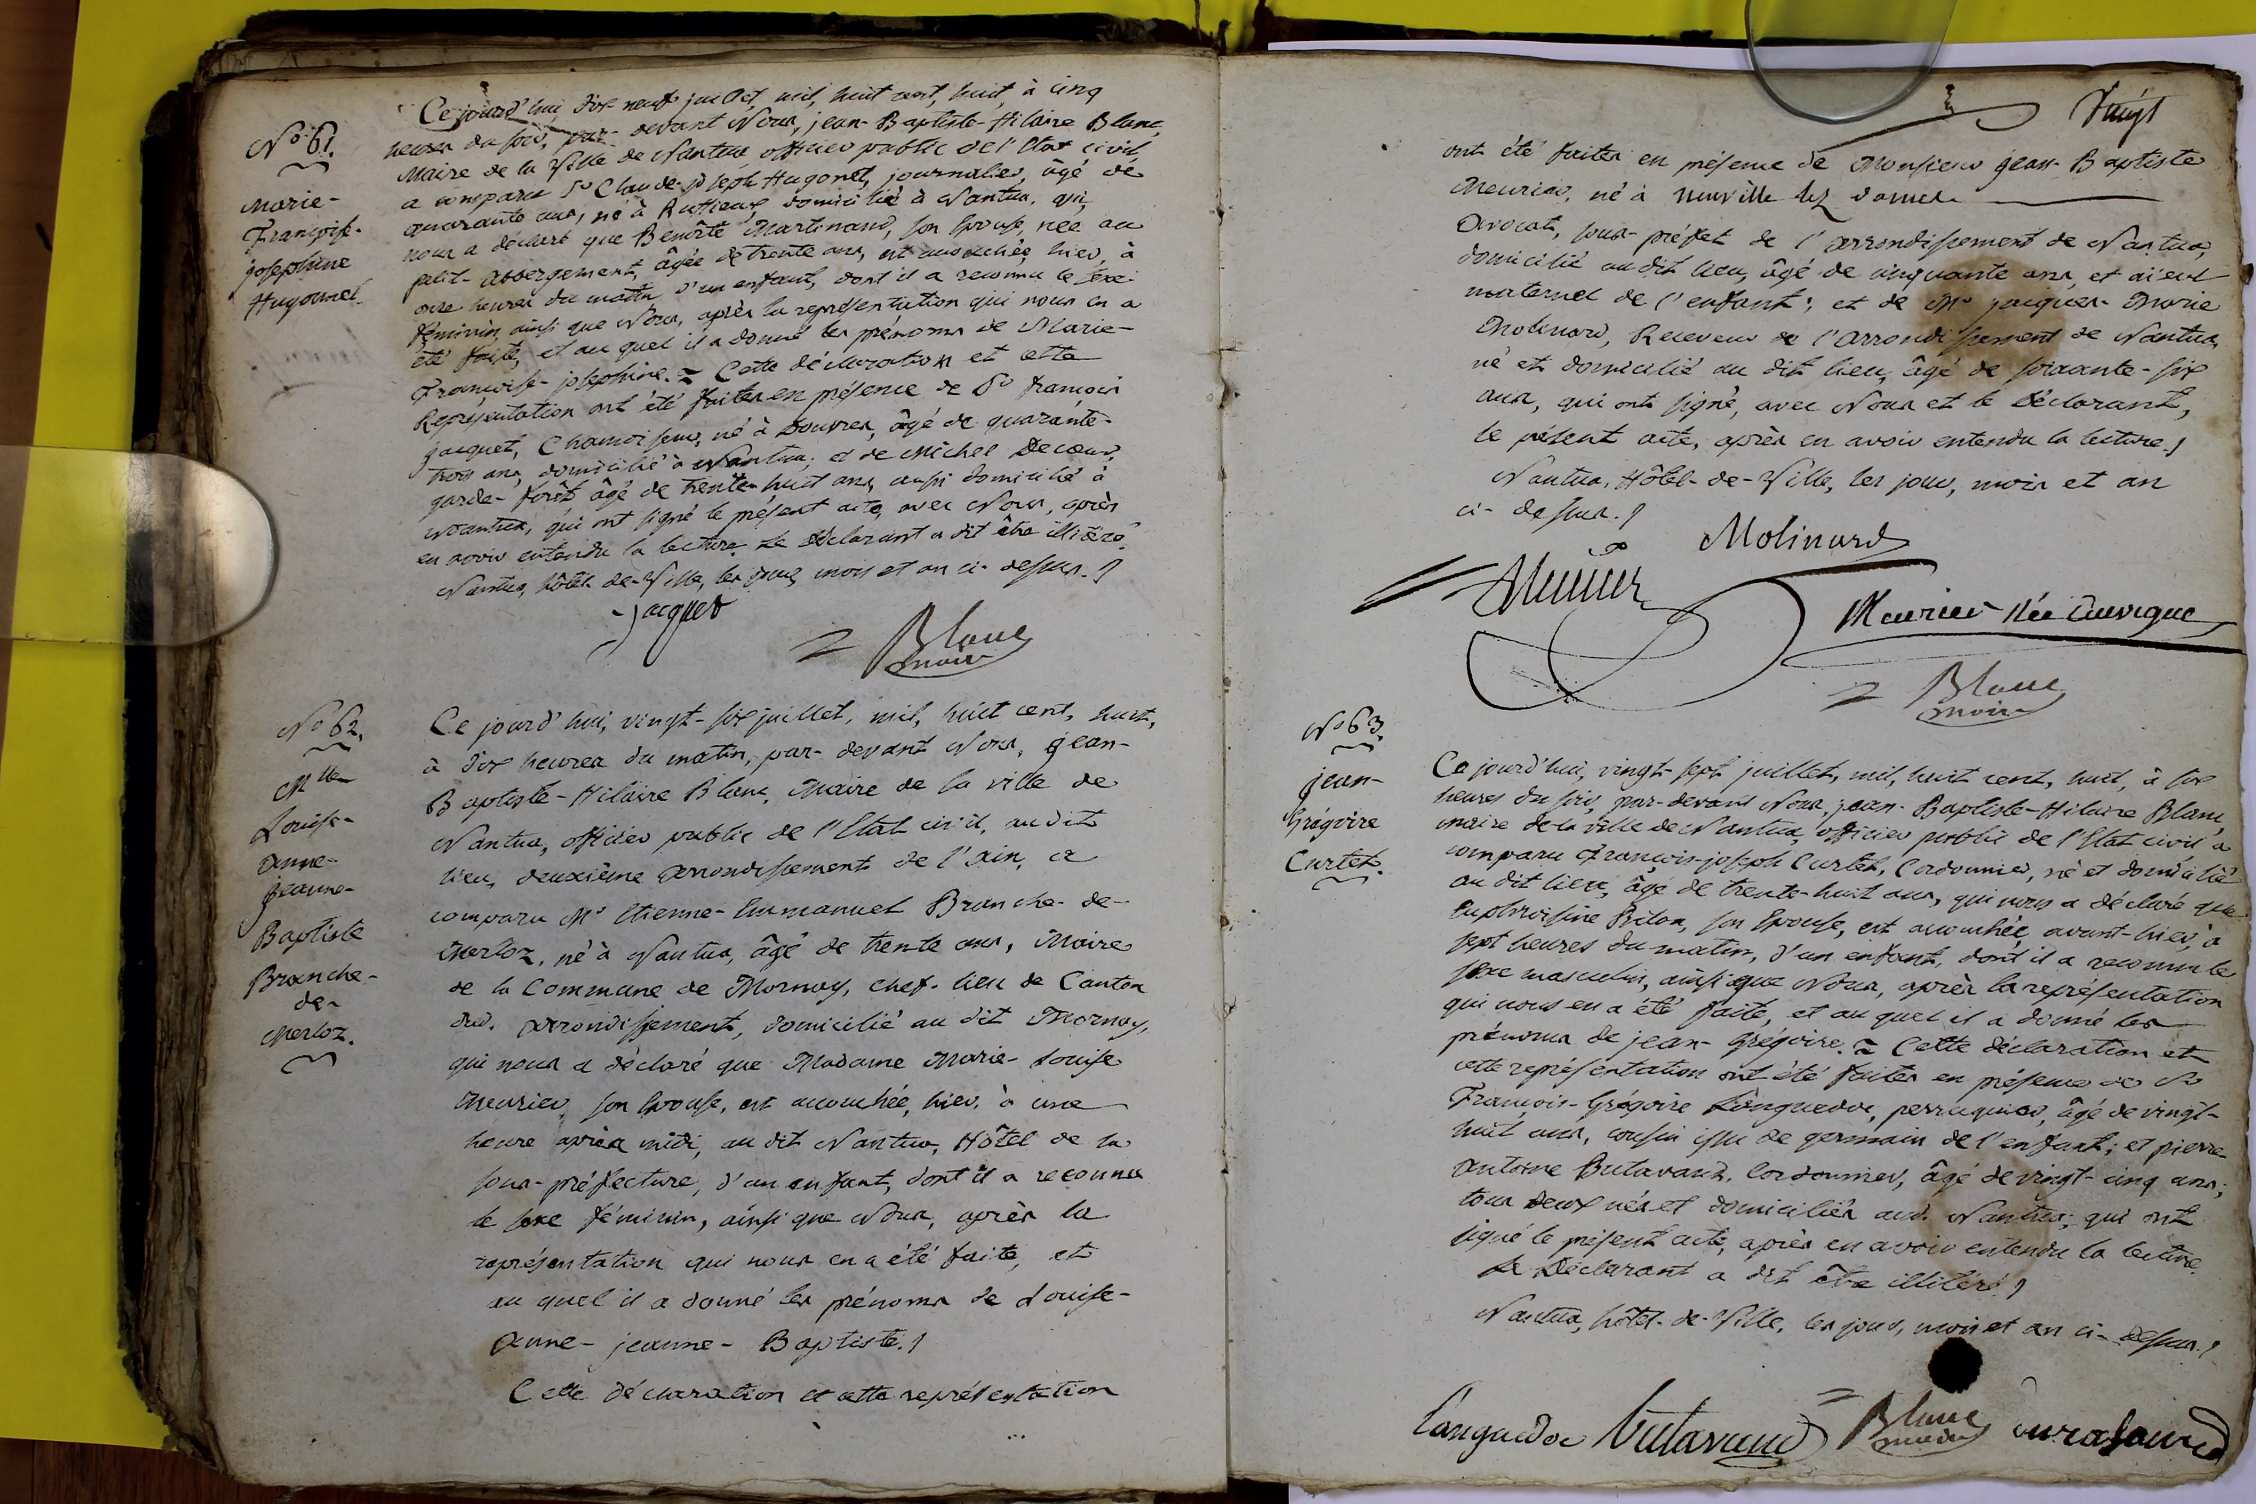 N.o 61.
Marie-
Françoise-
josephine
Hugonnet.
Ce jourd'hui, dix-neuf juillet, mil, huit cent, huit, à cinq
heures du soir, par-devant Nous, jean-Baptiste-Hilaire Blanc,
Maire de la Ville de Nantua officier public de l'Etat civil
a comparu Sr Claude-joseph Hugonet, journalier, âgé de
quarante ans, né à Ruffieux domicilié à Nantua, qui,
nous a déclaré que Benoîte Martinand, son Epouse, née au
petit-abbergement, âgée de trente ans, est accouchée, hier, à
onze heures du matin d'un enfant, dont il a reconnu le sexe
féminin, ainsi que Nous, après la représentation qui nous en a
été faite, et au quel il a donné les prénoms de Marie-
Françoise-josephine. = Cette déclaration et cette
Représentation ont été faites en présence de Sr françois
jacquet, Chamoiseur, né à Douvres, âgé de quarante-
trois ans, domicilié à Nantua; et de Michel Decoeur,
garde-forêt âgé de trente-huit ans, aussi domicilié à
Nantua, qui ont signé le présent acte, avec Nous, après
en avoir entendu la lecture. Le Déclarant a dit être illitéré.
Nantua, hôtel-de-Ville, les jour, mois et an ci-dessus.
Jacquet
Blanc
maire
N.o 62.
Mlle
Louise-
anne-
jeanne-
Baptiste
Branche-
de-
Merloz.
Ce jourd'hui, vingt-six juillet, mil, huit cent, huit,
à dix heures du matin, par-devant Nous, jean-
Baptiste-Hilaire Blanc, Maire de la ville de
Nantua, officier public de l'Etat civil, au dit
lieu, deuxième arrondissement de l'ain, a
comparu Mr Etienne-Emmanuel Branche-de-
Merloz, né à Nantua, âgé de trente ans, Maire
de la Commune de Mornay, chef-lieu de Canton
dud. arrondissement, domicilié au dit Mornay,
qui nous a déclaré que Madame Marie-Louise
Meurier, son Epouse, est accouchée, hier, à une
heure après midi, au dit Nantua, Hôtel de la
sous-préfecture, d'un enfant, dont il a reconnu
le sexe féminin, ainsi que Nous, après la
représentation qui nous en a été faite, et
au quel il a donné les prénoms de Louise-
anne-jeanne-Baptiste.
Cette déclaration et cette représentation
Vingt
ont été faites en présence de Monsieur jean-Baptiste
Meurier, né à Neuville lez dames
avocat, sous-préfet de l'arrondissement de Nantua,
domicilié au dit lieu, âgé de cinquante ans, et aïeul
maternel de l'enfant; et de Mr jacques-Marie
Molinard, Receveur de l'arrondissement de Nantua,
né et domicilié au dit lieu, âgé de soixante-six
ans, qui ont signé, avec Nous et le Déclarant,
le présent acte, après en avoir entendu la lecture.
Nantua, Hôtel-de-Ville, les jour, mois et an
ci-dessus.
Molinard
Meurier
Meurier née
Blanc
maire
N.o 63.
jean-
Grégoire
Curtet.
Ce jourd'hui, vingt-sept juillet, mil, huit cent, huit, à six
heures du soir, par-devant Nous, jean-Baptiste-Hilaire Blanc,
maire de la ville de Nantua, officier public de l'Etat civil a
comparu François-joseph Curtet, Cordonnier, né et domicilié
au dit lieu, âgé de trente-huit ans, qui nous a déclaré que
Euphroisine Bilon, son Epouse, est accouchée, avant-hier, à
sept heures du matin, d'un enfant, dont il a reconnu le
sexe masculin, ainsi que Nous, après la représentation
qui nous en a été faite, et au quel il a donné les
prénoms de jean-Grégoire. = Cette déclaration et
cette représentation ont été faites en présence de Sr
François-Grégoire Languedoc, perruquier, âgé de vingt-
huit ans, cousin issu de germain de l'enfant; et pierre-
antoine Butavand, Cordonnier, âgé de vingt-cinq ans;
tous deux nés et domiciliés aud. Nantua; qui ont
signé le présent acte, après en avoir entendu la lecture.
Le Déclarant a dit être illitéré
Nantua, hôtel-de-Ville, les jour, mois et an ci-dessus.
Languedoc Butavand
Blanc
maire